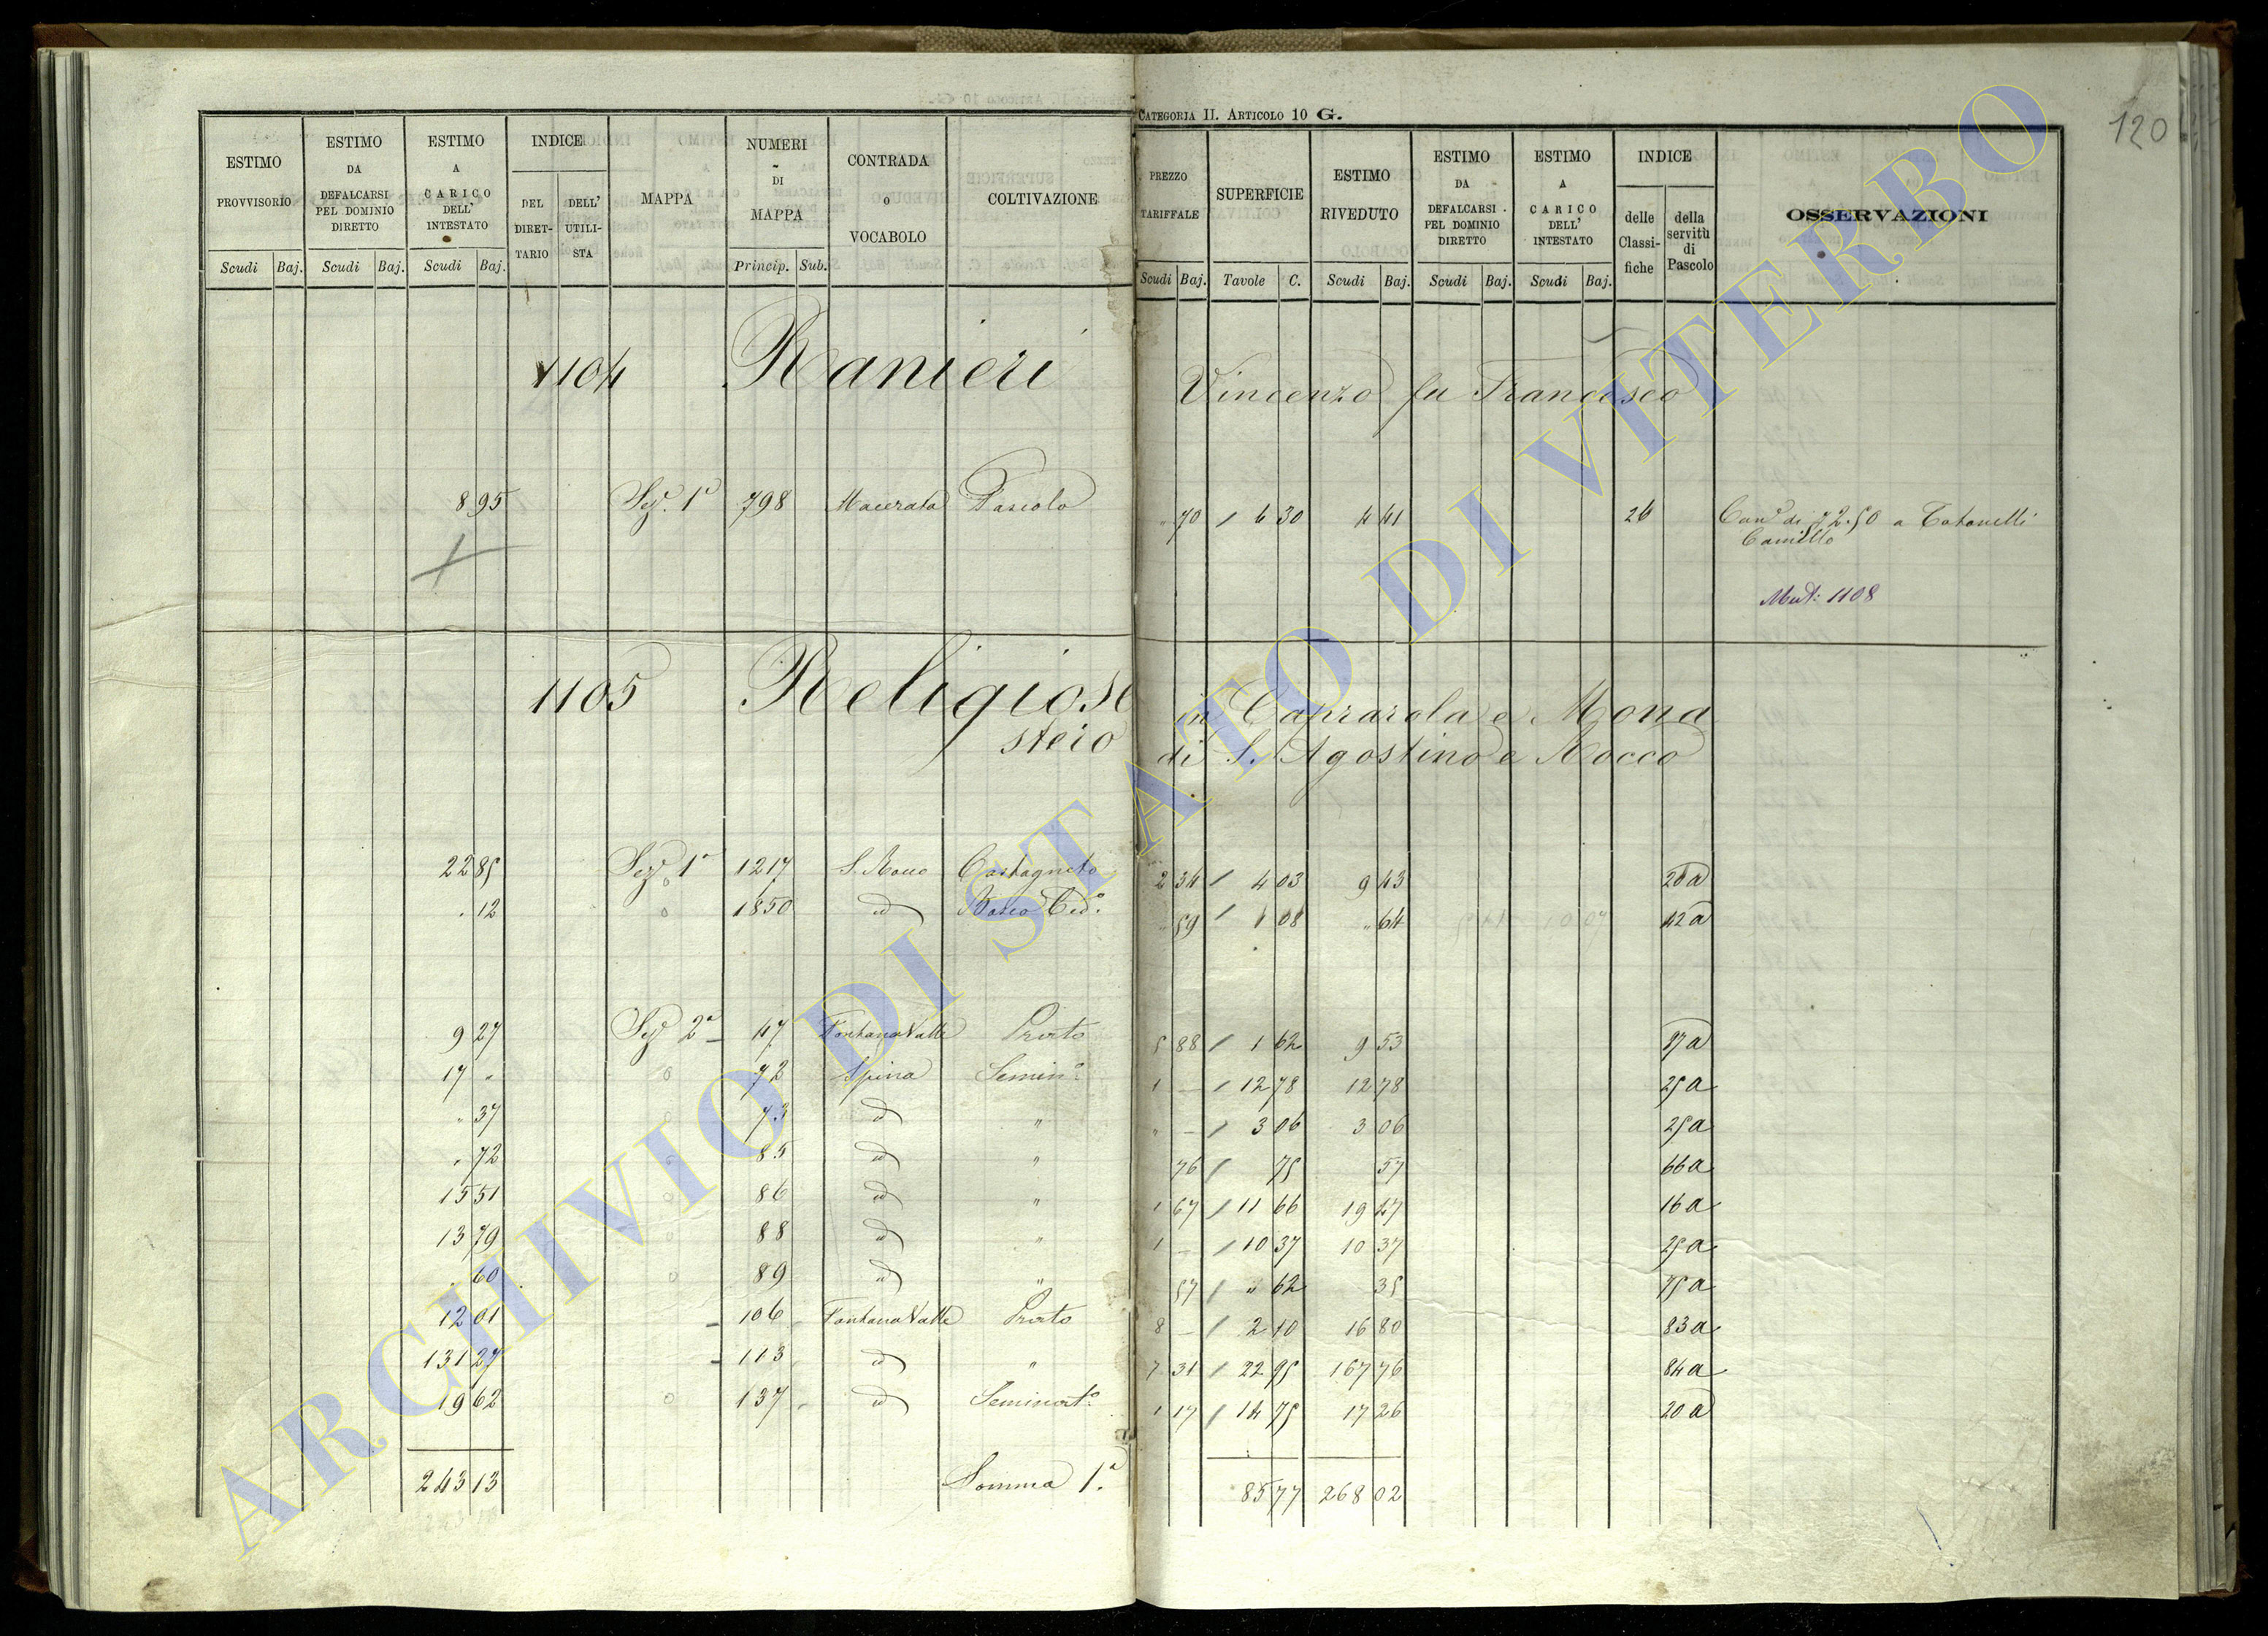 CATEGORIA II. ARTICOLO 10 G.
120
ESTIMO PROVVISORIO
ESTIMO DA DEFALCARSI PEL DOMINIO DIRETTO
ESTIMO A CARICO DELL' INTESTATO
INDICE
DEL DIRETTARIO
DELL' UTILISTA
MAPPA
NUMERI DI MAPPA
CONTRADA o VOCABOLO
COLTIVAZIONE
PREZZO TARIFFALE
SUPERFICIE
ESTIMO RIVEDUTO
ESTIMO DA DEFALCARSI PEL DOMINIO DIRETTO
ESTIMO A CARICO DELL' INTESTATO
INDICE
delle Classifiche
della servitù di Pascolo
OSSERVAZIONI
Scudi Baj. Scudi Baj. Scudi Baj. Princip. Sub. Scudi Baj. Tavole C. Scudi Baj. Scudi Baj. Scudi Baj.
1104 Ranieri Vincenzo fu Francesco
8 95 Sez. 1a 798 Macerata Pascolo " 70 / 6 30 4 41 26
a Totonelli
Camillo
Mut: 1108
1105 Religiose in Caprarola e Mona
stero di S. Agostino e Rocco
22 85 Sez. 1a 1217 S. Rocco Castagneto 2 34 / 4 03 9 43 26 a
. 12 o 1850 id Bosco Ced.o " 59 / 1 08 " 64 42 a
9 27 Sez. 2a 47 Fontana Valle Prato 5 88 / 1 62 9 53 87 a
17 " o 72 Spina Semin.o 1 — / 12 78 12 78 25 a
" 37 o 73 id " " — / 3 06 3 06 25 a
" 72 o 85 id " 76 / 75 57 66 a
15 51 o 86 id " 1 67 / 11 66 19 47 16 a
13 79 o 88 id " 1 — / 10 37 10 37 25 a
. 60 o 89 id " 57 / " 62 35 75 a
12 01 106 Fontana Valle Prato 8 — / 2 10 16 80 83 a
131 27 113 id " 7 31 / 22 95 167 76 84 a
19 62 o 137 id Seminat.o 1 17 / 14 75 17 26 20 a
243 13 Somma 1.a 85 77 268 02
ARCHIVIO DI STATO DI VITERBO